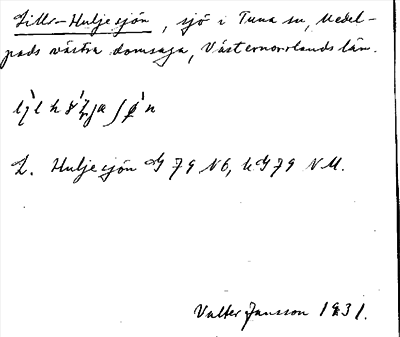 Lill-Huljesjön, sjö i Tuna sn, Medel-
pads västra domsaga, Västernorrlands län.
L. Huljesjön G 79 N6, k G 79 NM.
Valter Jansson 1931.